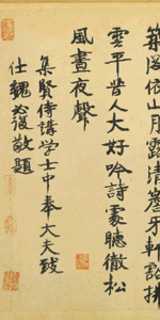 築閣依山月露清簷牙軒豁排
雲平昔人大好吟詩處聽徹松
風晝夜聲
集賢侍講學士中奉大夫致
仕魏必復敬題